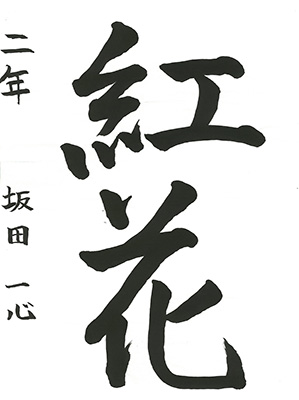 紅花
二年 坂田一心